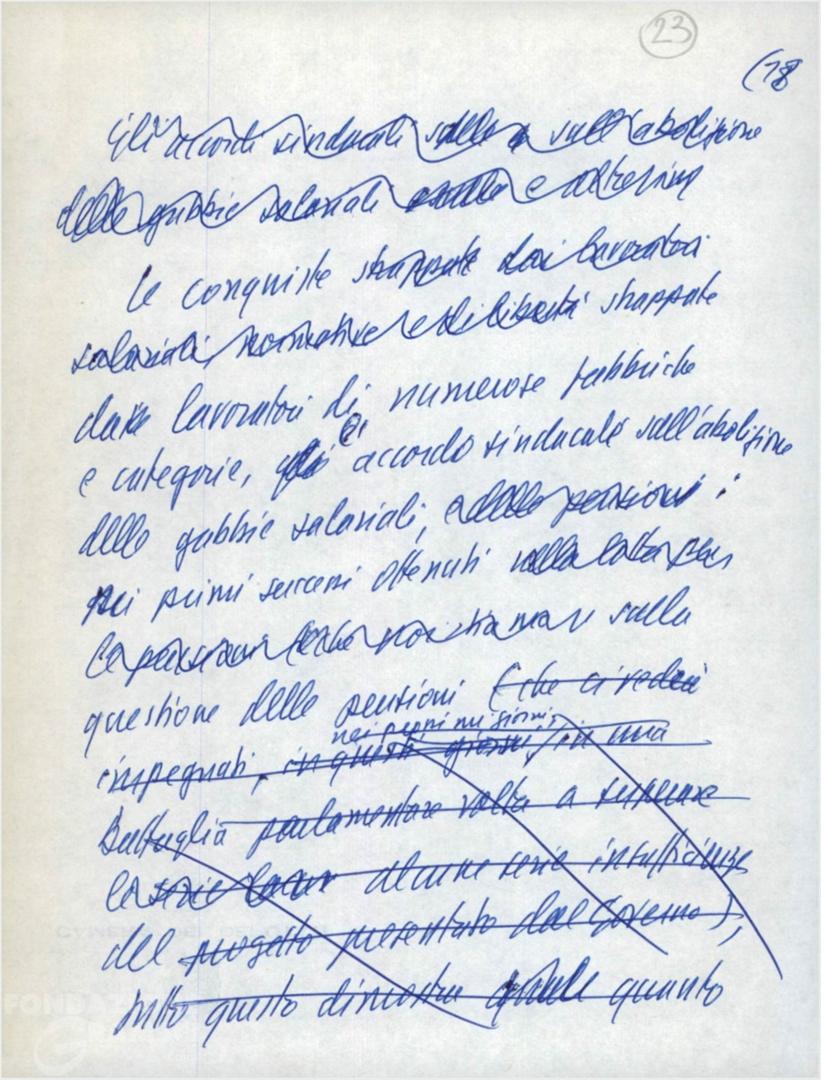 23
(18
Gli accordi sindacali sulle sull'abolizione
delle gabbie salariali e altresing
Le conquiste strappate dai lavoratori
salariali, normative e di libertà strappate
dai lavoratori di numerose fabbriche
e categorie, gli l' accordo sindacale sull'abolizione
delle gabbie salariali, e delle pensioni i
primi successi ottenuti nella lotta per
le pensioni sulla
questione delle pensioni (che ci vedrà
nei prossimi giorni,
impegnati, in questi giorni, in una
battaglia parlamentare volta a superare
le serie alcune serie insufficienze
del progetto presentato dal Governo),
tutto questo dimostra quanto
FONDAZ